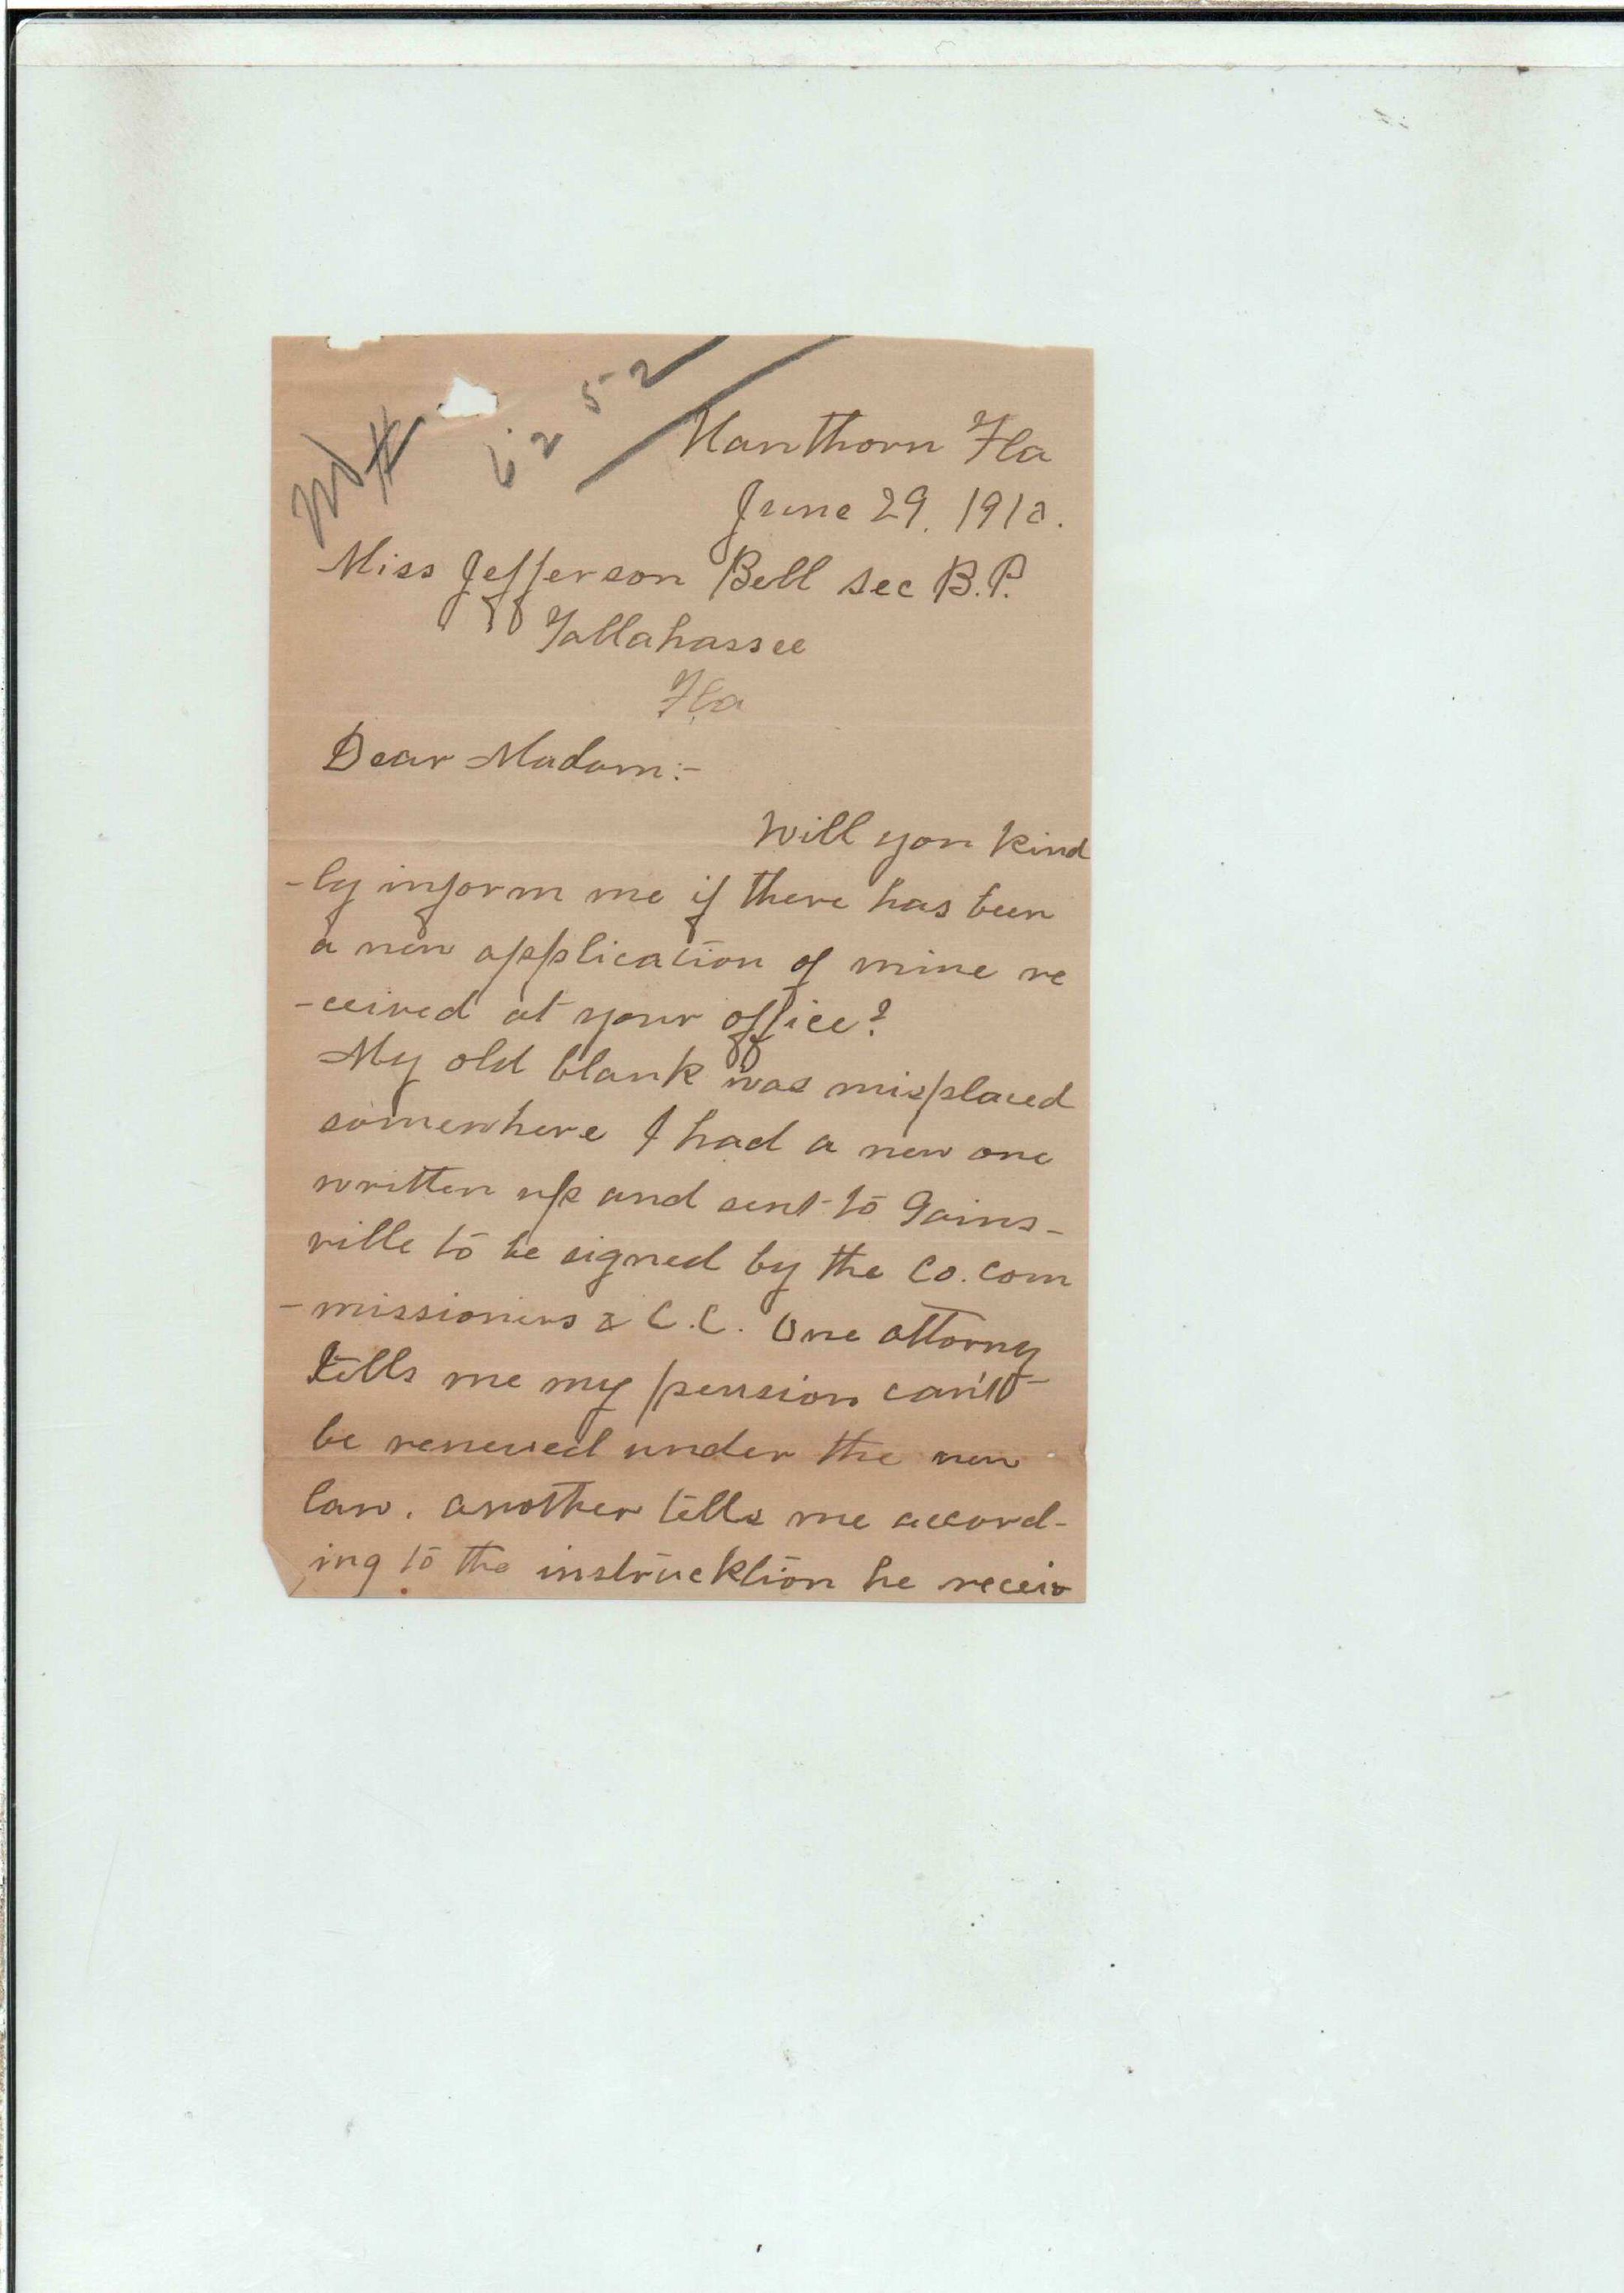 W #
6252
Hawthorn Fla
June 29. 1910.
Miss Jefferson Bell sec B.P.
Tallahassee
Fla
Dear Madam:-
Will you kind
-ly inform me if there has been
a new application of mine re
-ceived at your office?
My old blank was misplaced
somewhere I had a new one
written up and sent to Gains-
ville to be signed by the Co. com
-missioners & C.C. One attorny
tells me my pension can't
be renewed under the new
law. another tells me accord-
ing to the instrucktion he receiv